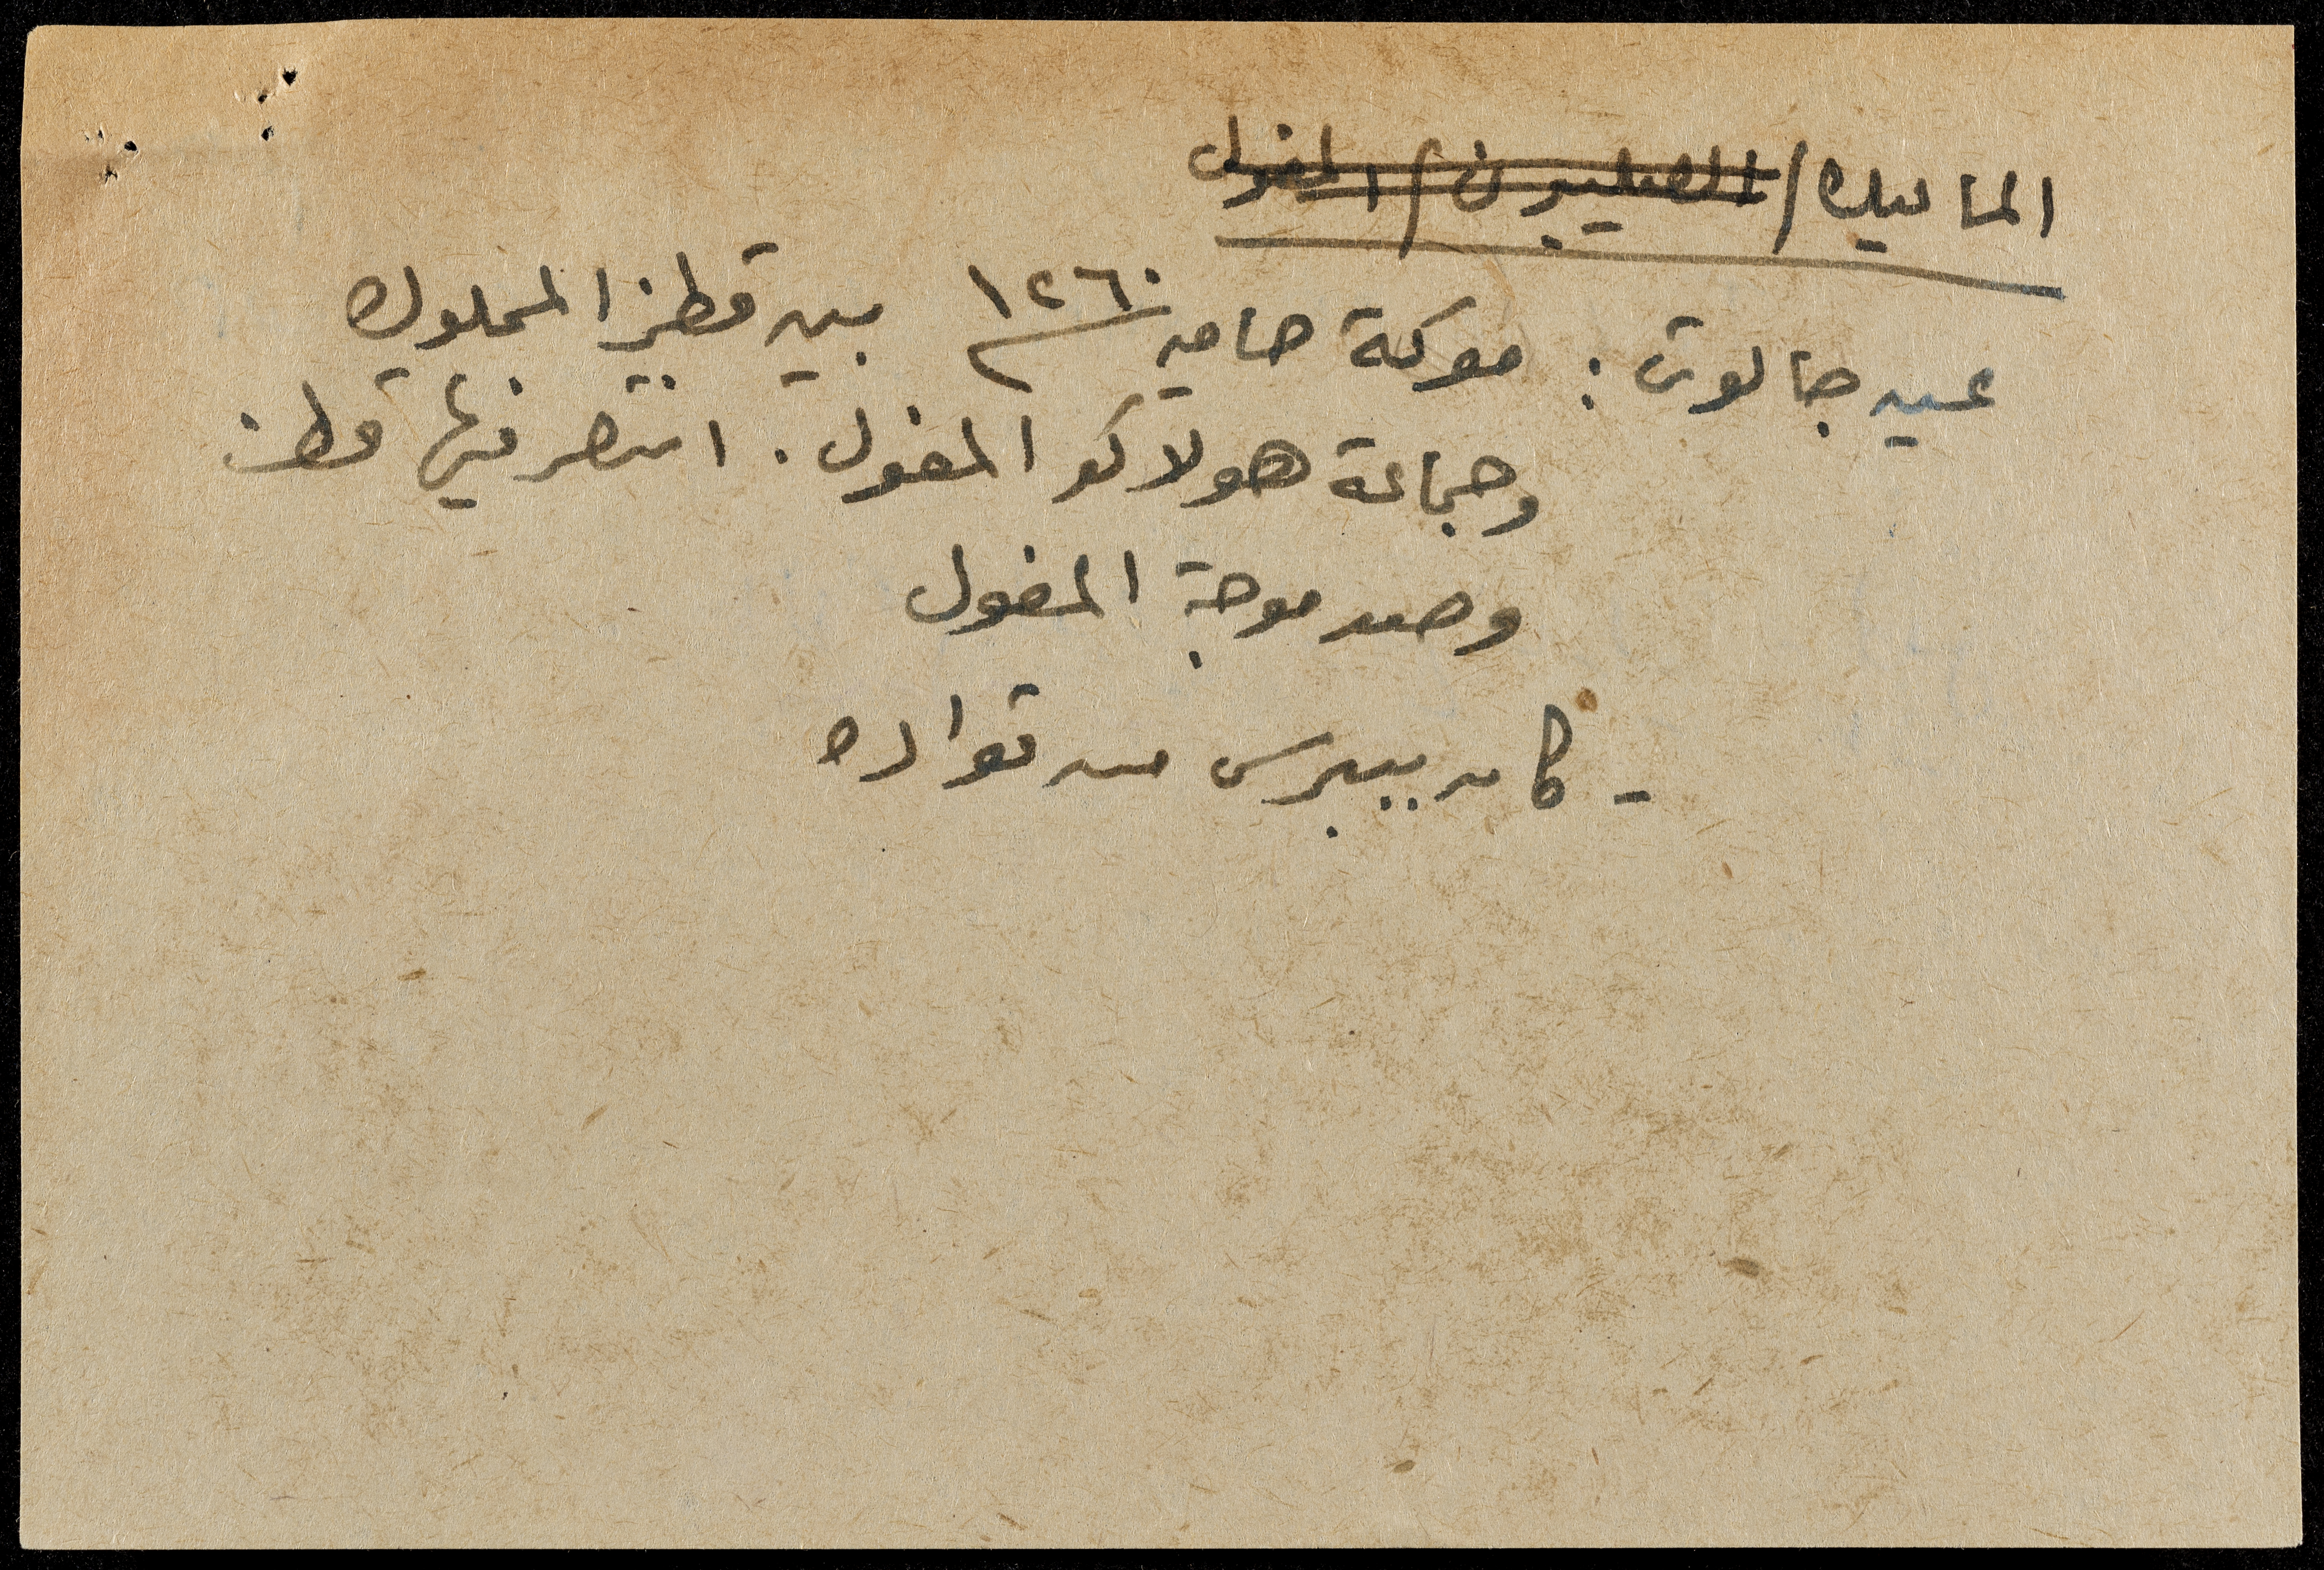 المماليك / الصليبيون / المغول
عين جالوت : معركة حامية ١٢٦٠ بين قطز المملوك
وجماعة هولاكو المغول . انتصر فيها قطز
وصد موجة المغول
- كان بيبرس من قواده